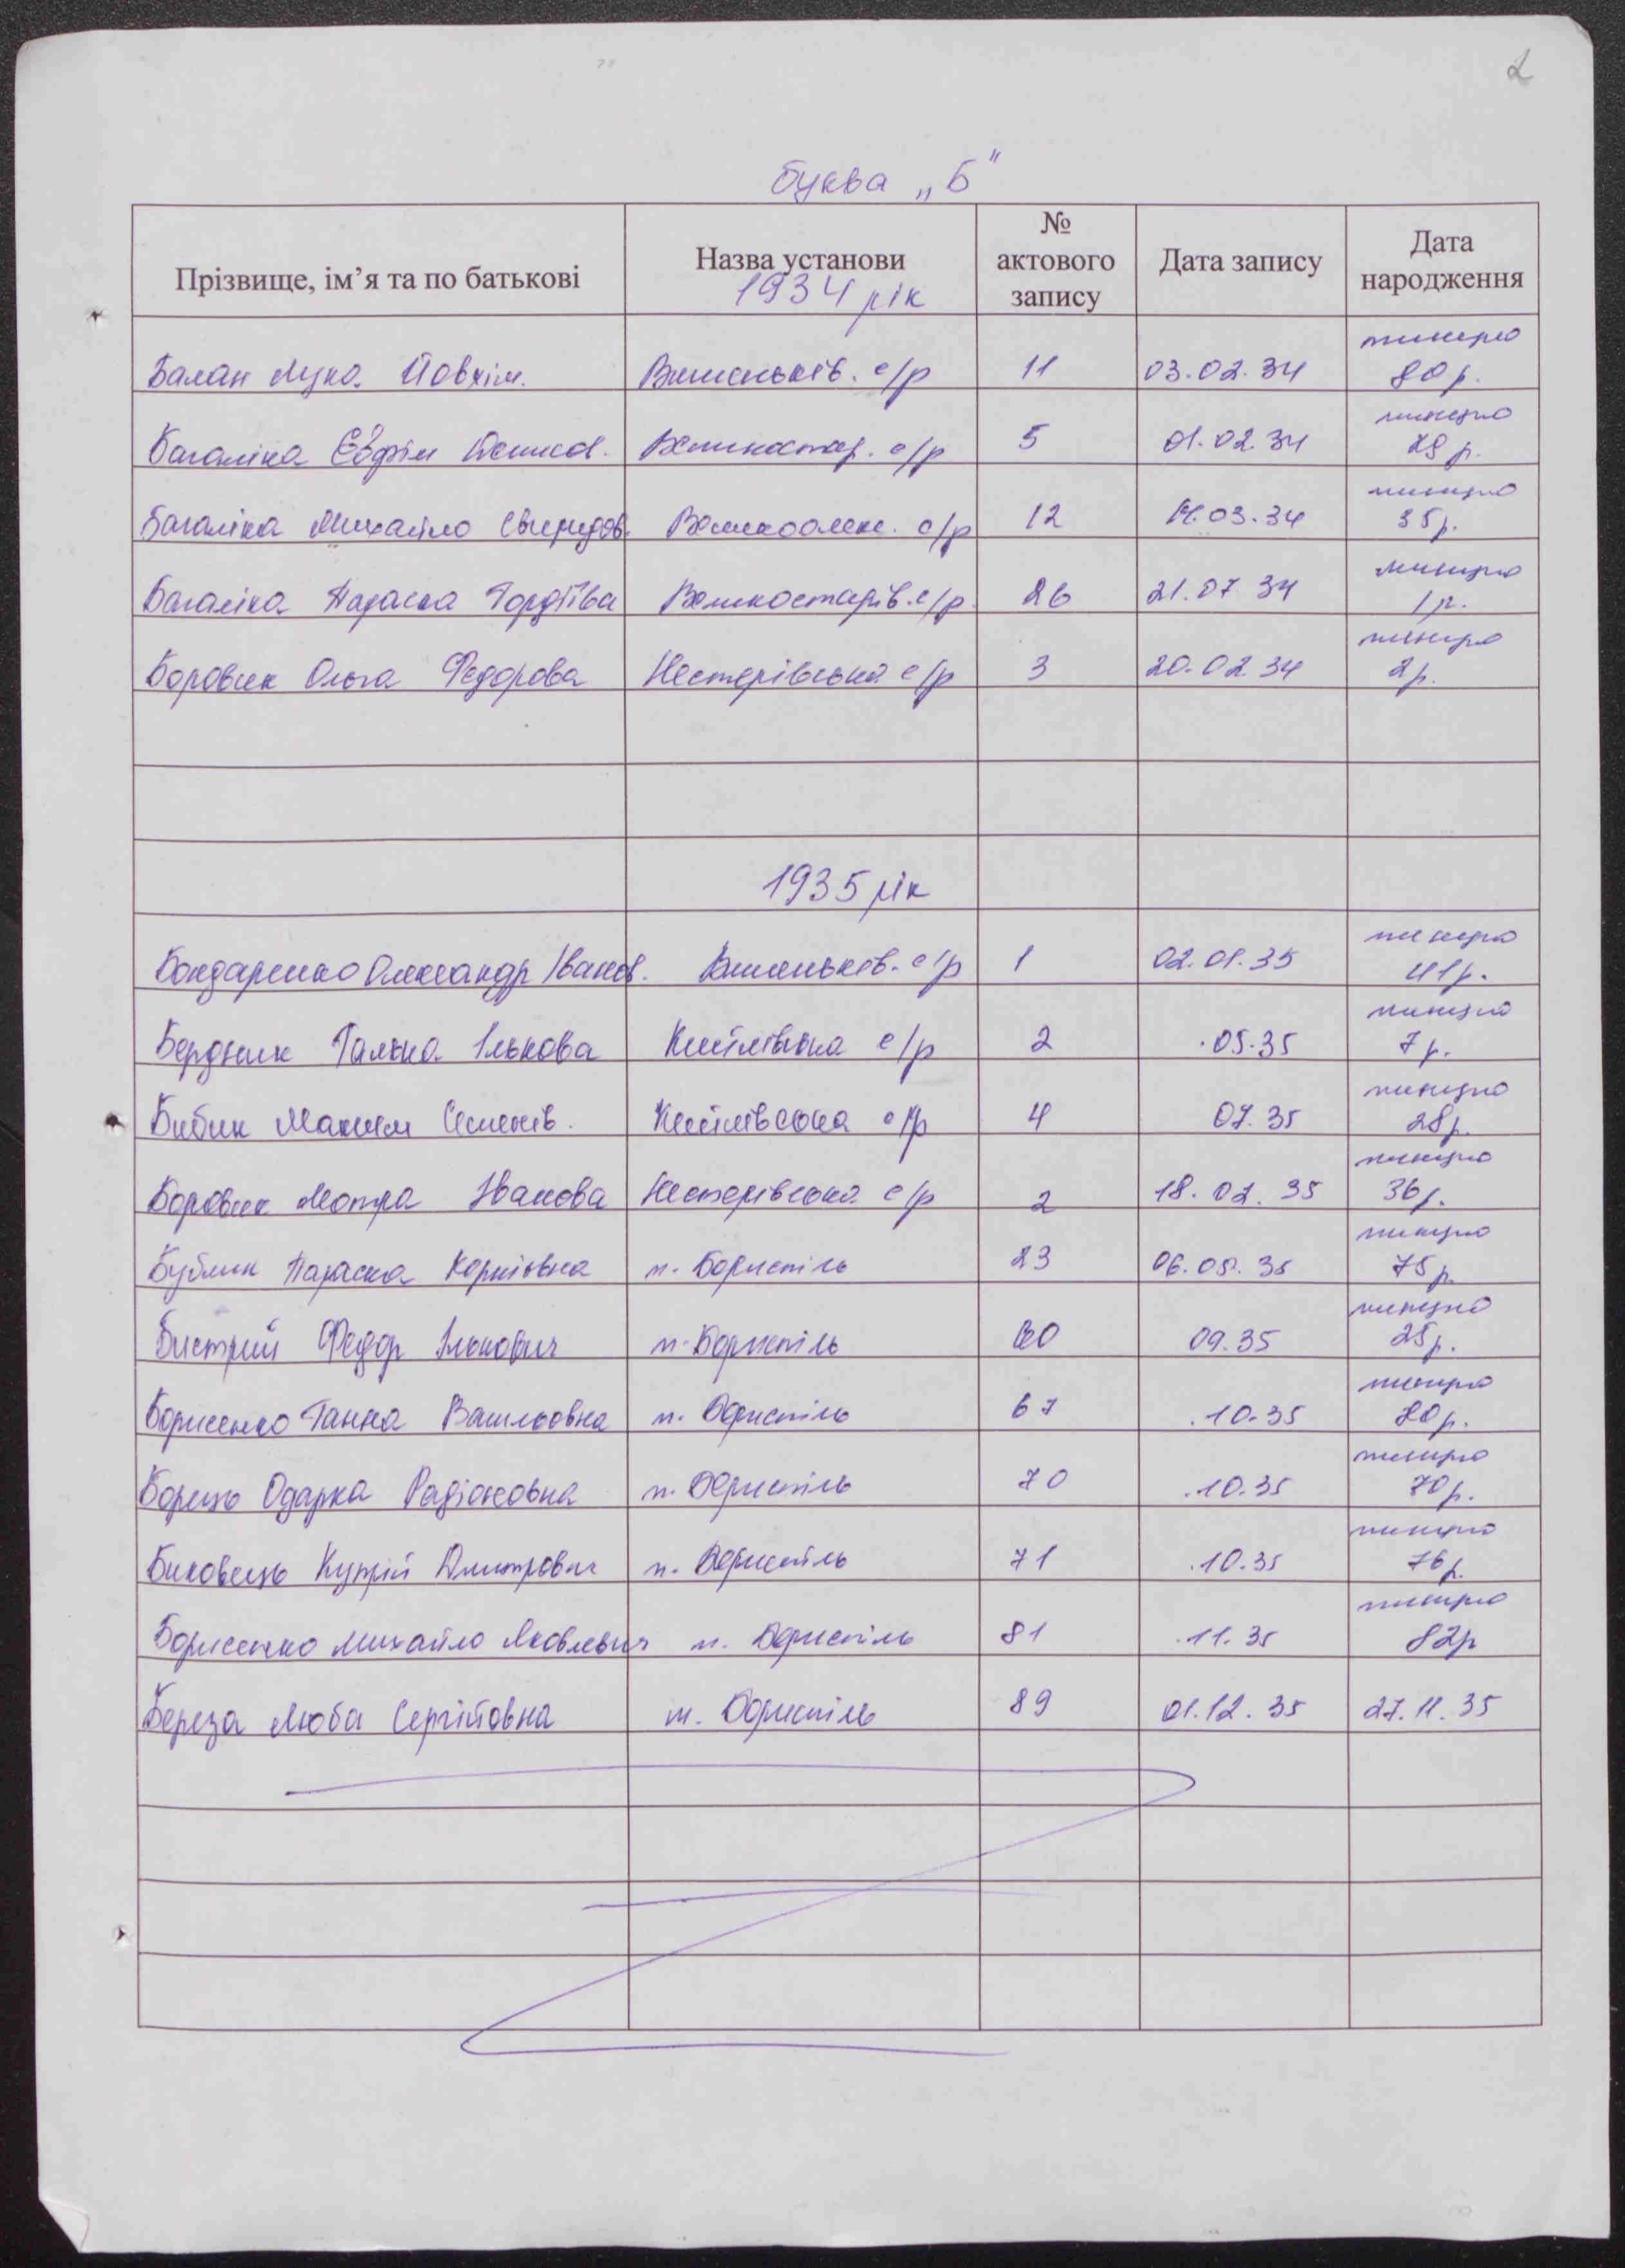 2
буква „Б"
Прізвище, ім'я та по батькові
Назва установи
1934 рік
№ актового запису
Дата запису
Дата народження
Балан Лука Йовхім. Вишеньків. с/р 11 03.02.34 80 р.
Багаліка Євфім Денисов. Великостар. с/р 5 01.02.34 р.
Багаліка Михайло Свиридов. Великоолекс. с/р 12 03.34 35 р.
Багаліка Параска Гордіїва Великостарів. с/р 26 21.07.34 1 р.
Боровик Ольга Федорова Нестерівська с/р 3 20.02.34 2 р.
1935 рік
Бондаренко Олександр Іванов. Вишеньків. с/р 1 02.01.35 41 р.
Бердник Галька Ількова Кийлівська с/р 2 .05.35 7 р.
Бибик Максим Семенів. Кийлівська с/р 4 07.35 28 р.
Боровик Мотра Іванова Нестерівська с/р 2 18.02.35 36 р.
Бублик Параска Корніївна м. Бориспіль 23 75 р.
Бистрий Федор Ількович м. Бориспіль 60 09.35 25 р.
Борисенко Ганна Васильовна м. Бориспіль 67 .10.35 80 р.
Борець Одарка Радіоновна м. Бориспіль 70 .10.35 70 р.
Биковець Купрій Дмитрович м. Бориспіль 71 .10.35 76 р.
Борисенко Михайло Яковлевич м. Бориспіль 81 .11.35 82 р
Береза Люба Сергійовна м. Бориспіль 89 01.12.35 27.11.35